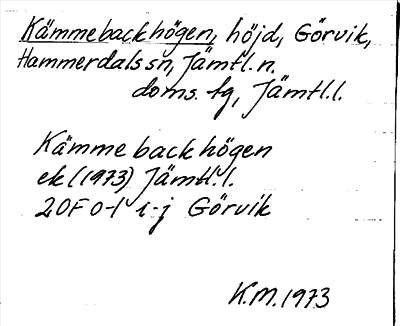 Kämmebackhögen, höjd, Görvik,
Hammerdals sn, Jämtl. n.
doms. tg, Jämtl.l.
Kämmebackhögen
ek (1973) Jämtl.l.
20F 0-1 i-j Görvik
K.M. 1973